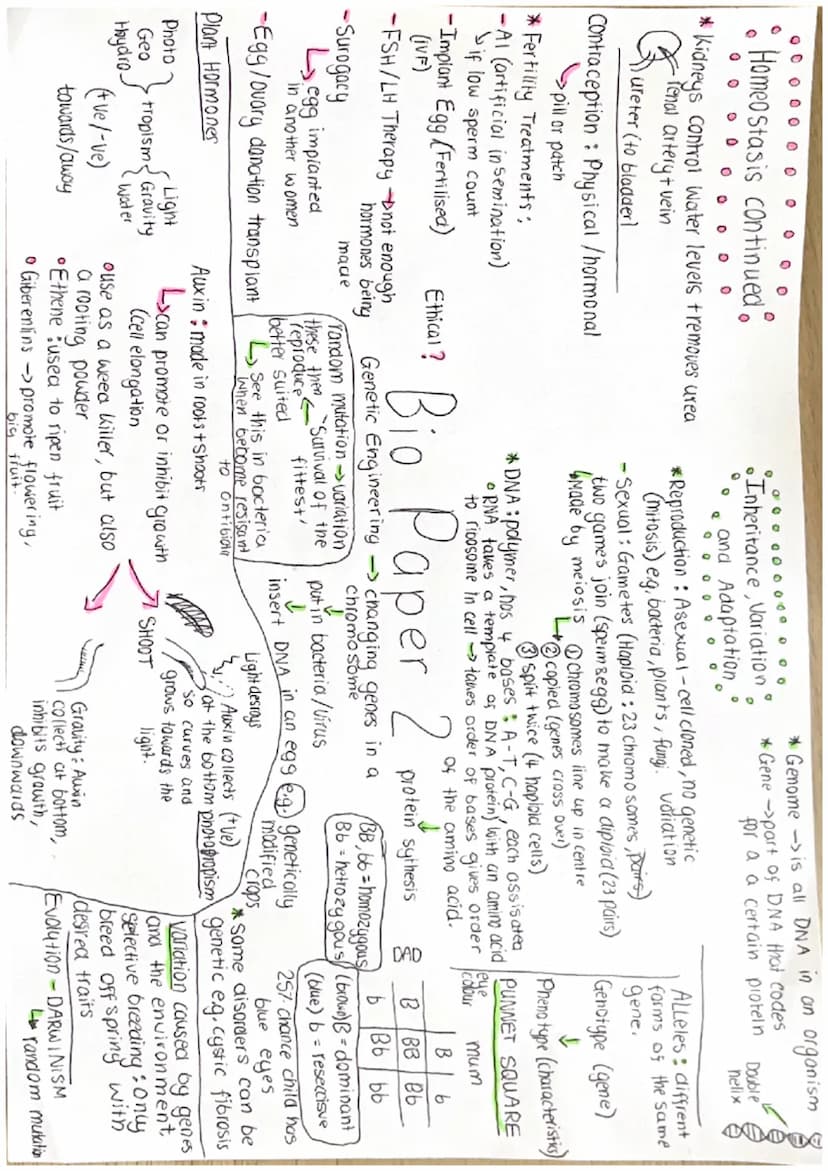 Homeostasis continued
* Kidneys control water levels + removes urea
renal artery + vein
ureter (to bladder)
Contraception : Physical / hormonal
↳ pill or patch
* Fertility Treatments :
- AI (artificial insemination)
↳ if low sperm count
- Implant Egg (Fertilised)
(IVF)
- FSH / LH Therapy → not enough
hormones being
made
- Surogacy
↳ egg implanted
in another women
- Egg / ovary donation transplant
Ethical ?
Plant Hormones
Photo
Geo
Hydro
tropism
Light
Gravity
Water
(+ve/-ve)
towards/away
Auxin : made in roots + shoots
↳ can promote or inhibit growth
(cell elongation
• use as a weed killer, but also
a rooting powder
• Ethene : used to ripen fruit
• Giberenlins → promote flowering,
big fruit
SHOOT
Light desroys
Auxin collects (+ve)
at the bottom phototropism
so curves and
grows towards the
light.
Gravity : Auxin
collect at bottom,
inhibits growth,
downwards
Bio Paper 2
Inheritance, Variation
and Adaptation
* Reproduction : Asexual - cell cloned, no genetic
variation
(mitosis) e.g. bacteria, plants, fungi.
- Sexual : Gametes (Haploid : 23 chromosomes, pairs)
two games join (sperm & egg) to make a diploid (23 pairs)
↳ Made by meiosis
① chromosomes line up in centre
② copied (genes cross over)
③ split twice (4 haploid cells)
* DNA : polymer, has 4 bases : A-T, C-G, each assisated
with an amino acid
• RNA takes a template of DNA protein)
to ribosome in cell → takes order of bases gives order
of the amino acid.
protein sythesis
Genetic Engineering → changing genes in a
chromosome
put in bacteria / virus
insert DNA in an egg e.g. genetically
modified
crops
random mutation → variation
'survival of the
fittest'
these then
reproduce
better suited
↳ See this in bacteria
when become resisant
to antibiotic
* Genome → is all DNA in an organism
* Gene → part of DNA that codes
for a a certain protein
Double
helix
Alleles : diffrent
forms of the same
gene.
Genotype (gene)
Phenotype (characteristics)
PUNNET SQUARE
eye
colour
mum
B b
B BB Bb
b Bb bb
BB, bb = homozygous
Bb = hetrozygous
(brown) B = dominant
(blue) b = resecisve
25% chance child has
blue eyes
* Some disorders can be
genetic e.g. cystic fibrosis
variation caused by genes
and the environment,
selective breeding : only
breed offspring with
desired traits
Evolution - DARWINISM
↳ random mutatio